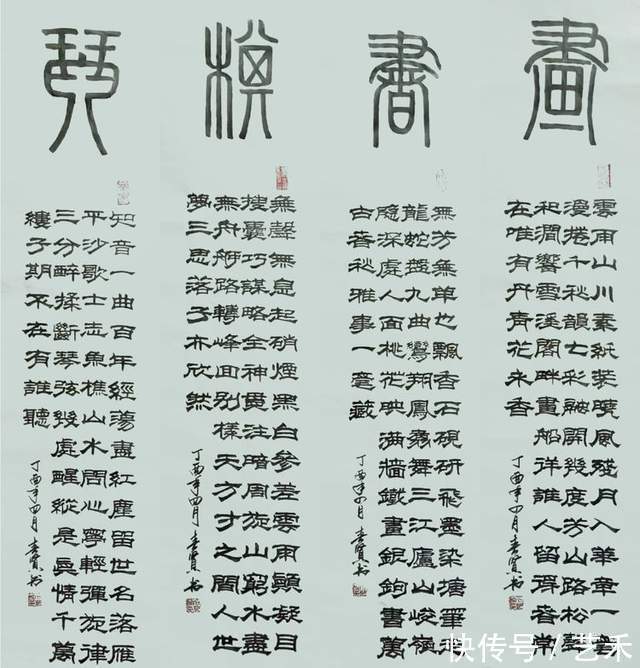 琴
知音一曲百年經蕩盡紅塵留世名落雁
平沙歌士志魚樵山水問心寧輕彈旋律
三分醉揉斷琴弦幾處醒縱是真情千萬
縷子期不在有誰聽
丁酉年四月
棋
無聲無息起硝煙黑白參差雲雨顛凝目
搜囊巧謀略全神貫注暗周旋山窮水盡
無舟舸路轉峰回別樣天方寸之間人世
夢三思落子亦欣然
丁酉年四月
書
無芳無草也飄香石硯研飛墨染塘筆走
龍蛇盤九曲鸞翔鳳翥舞三江廬山峻嶺
隱深處人面桃花映滿牆鐵畫銀鉤書萬
古春秋雅事一毫藏
丁酉年四月
畫
雲雨山川素紙裝曉風殘月入華章一毫
漫捲千秋韻七彩融開幾度芳山路松聲
和澗響雪溪閣畔畫船徉誰人留得春常
在唯有丹青花永香
丁酉年四月
快传号 / 艺禾